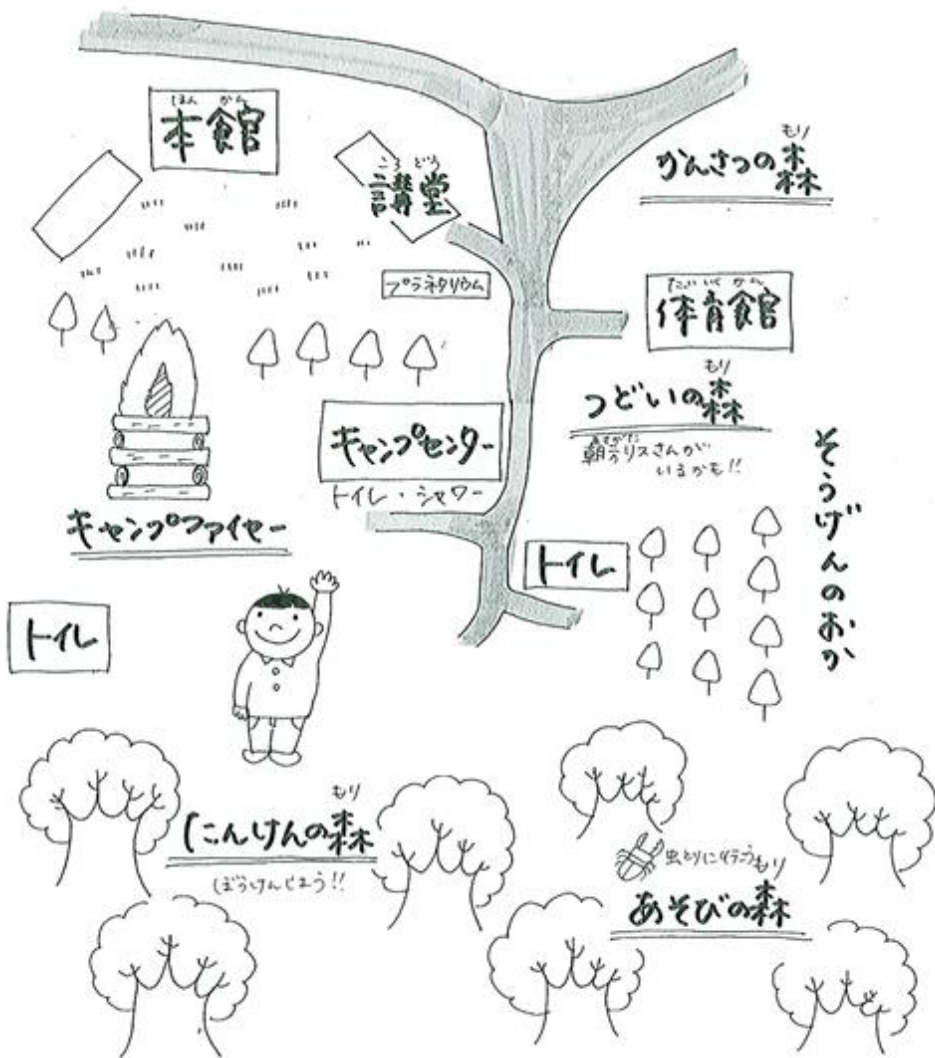 ほん かん
本館
こう どう
講堂
もり
かんさつの森
プラネタリウム
たい いく かん
体育館
もり
つどいの森
あさがた
朝方リスさんが
いるかも!!
キャンプセンター
トイレ・シャワー
キャンプファイヤー
トイレ
そうげんのおか
トイレ
もり
たんけんの森
ぼうけんしよう!!
虫とりに行こう
もり
あそびの森